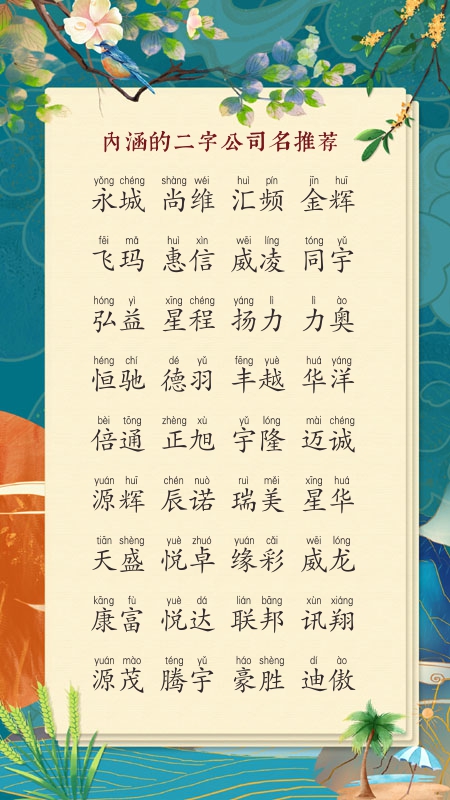 内涵的二字公司名推荐
yǒng chéng shàng wéi huì pín jīn huī
永城 尚维 汇频 金辉
fēi mǎ huì xìn wēi líng tóng yǔ
飞玛 惠信 威凌 同宇
hóng yì xīng chéng yáng lì lì ào
弘益 星程 扬力 力奥
héng chí dé yǔ fēng yuè huá yáng
恒驰 德羽 丰越 华洋
bèi tōng zhèng xù yǔ lóng mài chéng
倍通 正旭 宇隆 迈诚
yuán huī chén nuò ruì měi xīng huá
源辉 辰诺 瑞美 星华
tiān shèng yuè zhuó yuán cǎi wēi lóng
天盛 悦卓 缘彩 威龙
kāng fù yuè dá lián bāng xùn xiáng
康富 悦达 联邦 讯翔
yuán mào téng yǔ háo shèng dí ào
源茂 腾宇 豪胜 迪傲